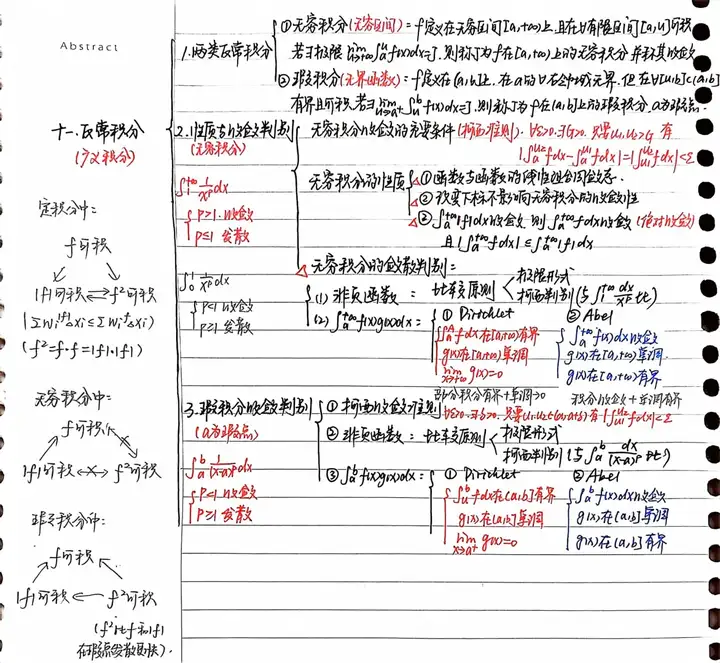 Abstract
十一.反常积分
(广义积分)
定积分中:
f可积
|f|可积 ⇌ f²可积
|Σwᵢ^{|f|}Δxᵢ ≤ Σwᵢ^fΔxᵢ)
(f²=f·f=|f|·|f|)
无穷积分中:
f可积
|f|可积 ↔ f²可积
瑕积分中:
f可积
|f|可积 ← f²可积
(f²比f和|f|
在瑕点发散更快).
1.两类反常积分
①无穷积分(无穷区间)=f定义在无穷区间[a,+∞)上,且在∀有限区间[a,u]可积
若∃极限 lim_{u→+∞}∫_a^u f(x)dx=J. 则称J为f在[a,+∞)上的无穷积分并称其收敛
②瑕积分(无界函数)=f定义在(a,b]上,在a的∀右邻域无界,但在∀[u,b]⊂(a,b]
有界且可积.若∃lim_{u→a⁺}∫_u^b f(x)dx=J.则称J为f在(a,b]上的瑕积分.a为瑕点.
2.性质与收敛判别
(无穷积分)
无穷积分收敛的充要条件(柯西准则). ∀ε>0.∃G>0.只要u₁,u₂>G 有
|∫_a^{u₂}fdx-∫_a^{u₁}fdx|=|∫_{u₁}^{u₂}fdx|<ε
∫_1^{+∞} 1/x^p dx
{ p>1.收敛
p≤1 发散
无穷积分的性质
①函数与函数的线性组合同敛态.
②改变下标不影响无穷积分的收敛性
③∫_a^{+∞}|f|dx收敛 则∫_a^{+∞}fdx收敛(绝对收敛)
且|∫_a^{+∞}fdx|≤∫_a^{+∞}|f|dx
无穷积分的敛散判别=
∫_0^1 1/x^p dx
{ p<1 收敛
p≥1 发散
(1) 非负函数 = 比较原则 < 极限形式
柯西判别(与∫_1^{+∞}dx/x^p比)
(2) ∫_a^{+∞}f(x)g(x)dx=
① Dirichlet
∫_a^A fdx在[a,+∞)有界
g(x)在[a,+∞)单调
lim_{x→+∞} g(x)=0
部分积分有界+单调→0
② Abel
∫_a^{+∞}f(x)dx收敛
g(x)在[a,+∞)单调.
g(x)在[a,+∞)有界
积分收敛+单调有界
3.瑕积分收敛判别
(a为瑕点)
① 柯西收敛准则 ∀ε>0.∃δ>0.只要u₁,u₂∈(a,a+δ)有|∫_{u₁}^{u₂}fdx|<ε
② 非负函数=比较原则 < 极限形式
柯西判别(与∫_a^b dx/(x-a)^p 比)
∫_a^b 1/(x-a)^p dx
{ p<1 收敛
p≥1 发散
③ ∫_a^b f(x)g(x)dx=
① Dirichlet
∫_u^b fdx在(a,b]有界
g(x)在(a,b]单调
lim_{x→a⁺} g(x)=0
② Abel
∫_a^b f(x)dx收敛
g(x)在(a,b]单调
g(x)在(a,b]有界